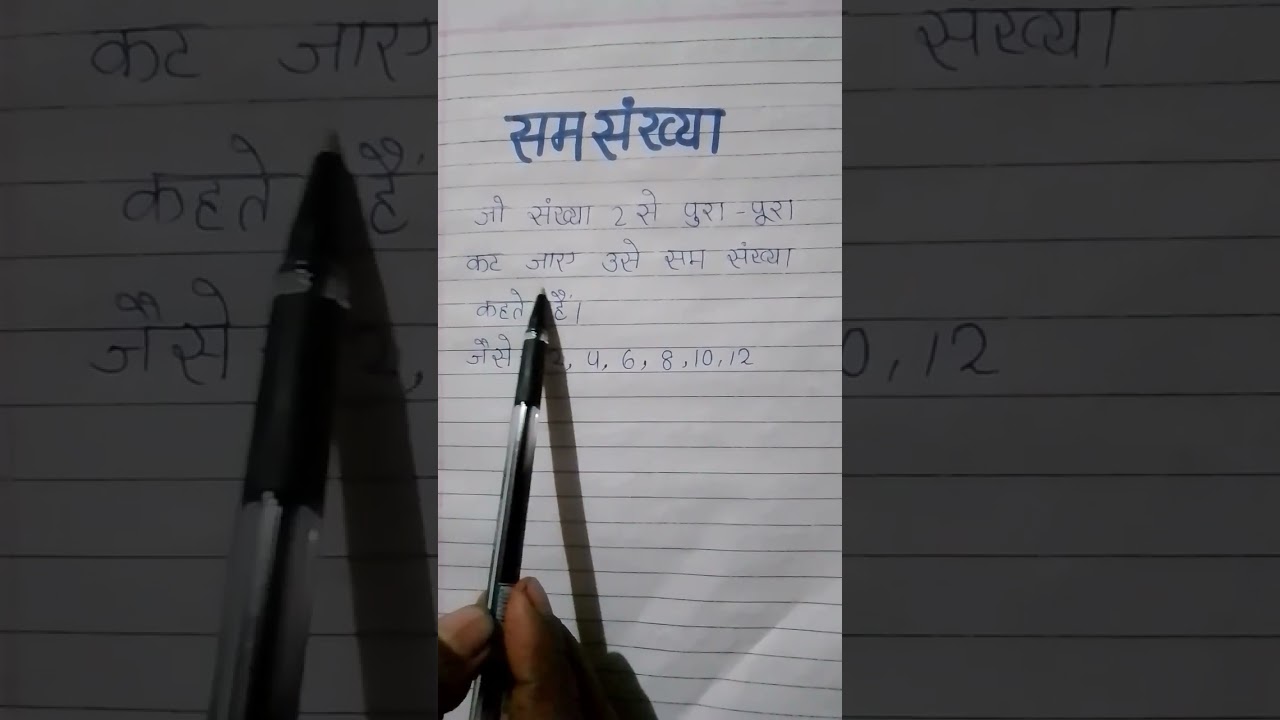 सम संख्या
जो संख्या 2 से पुरा-पूरा
कट जाए उसे सम संख्या
कहते हैं।
जैसे 2, 4, 6, 8, 10, 12